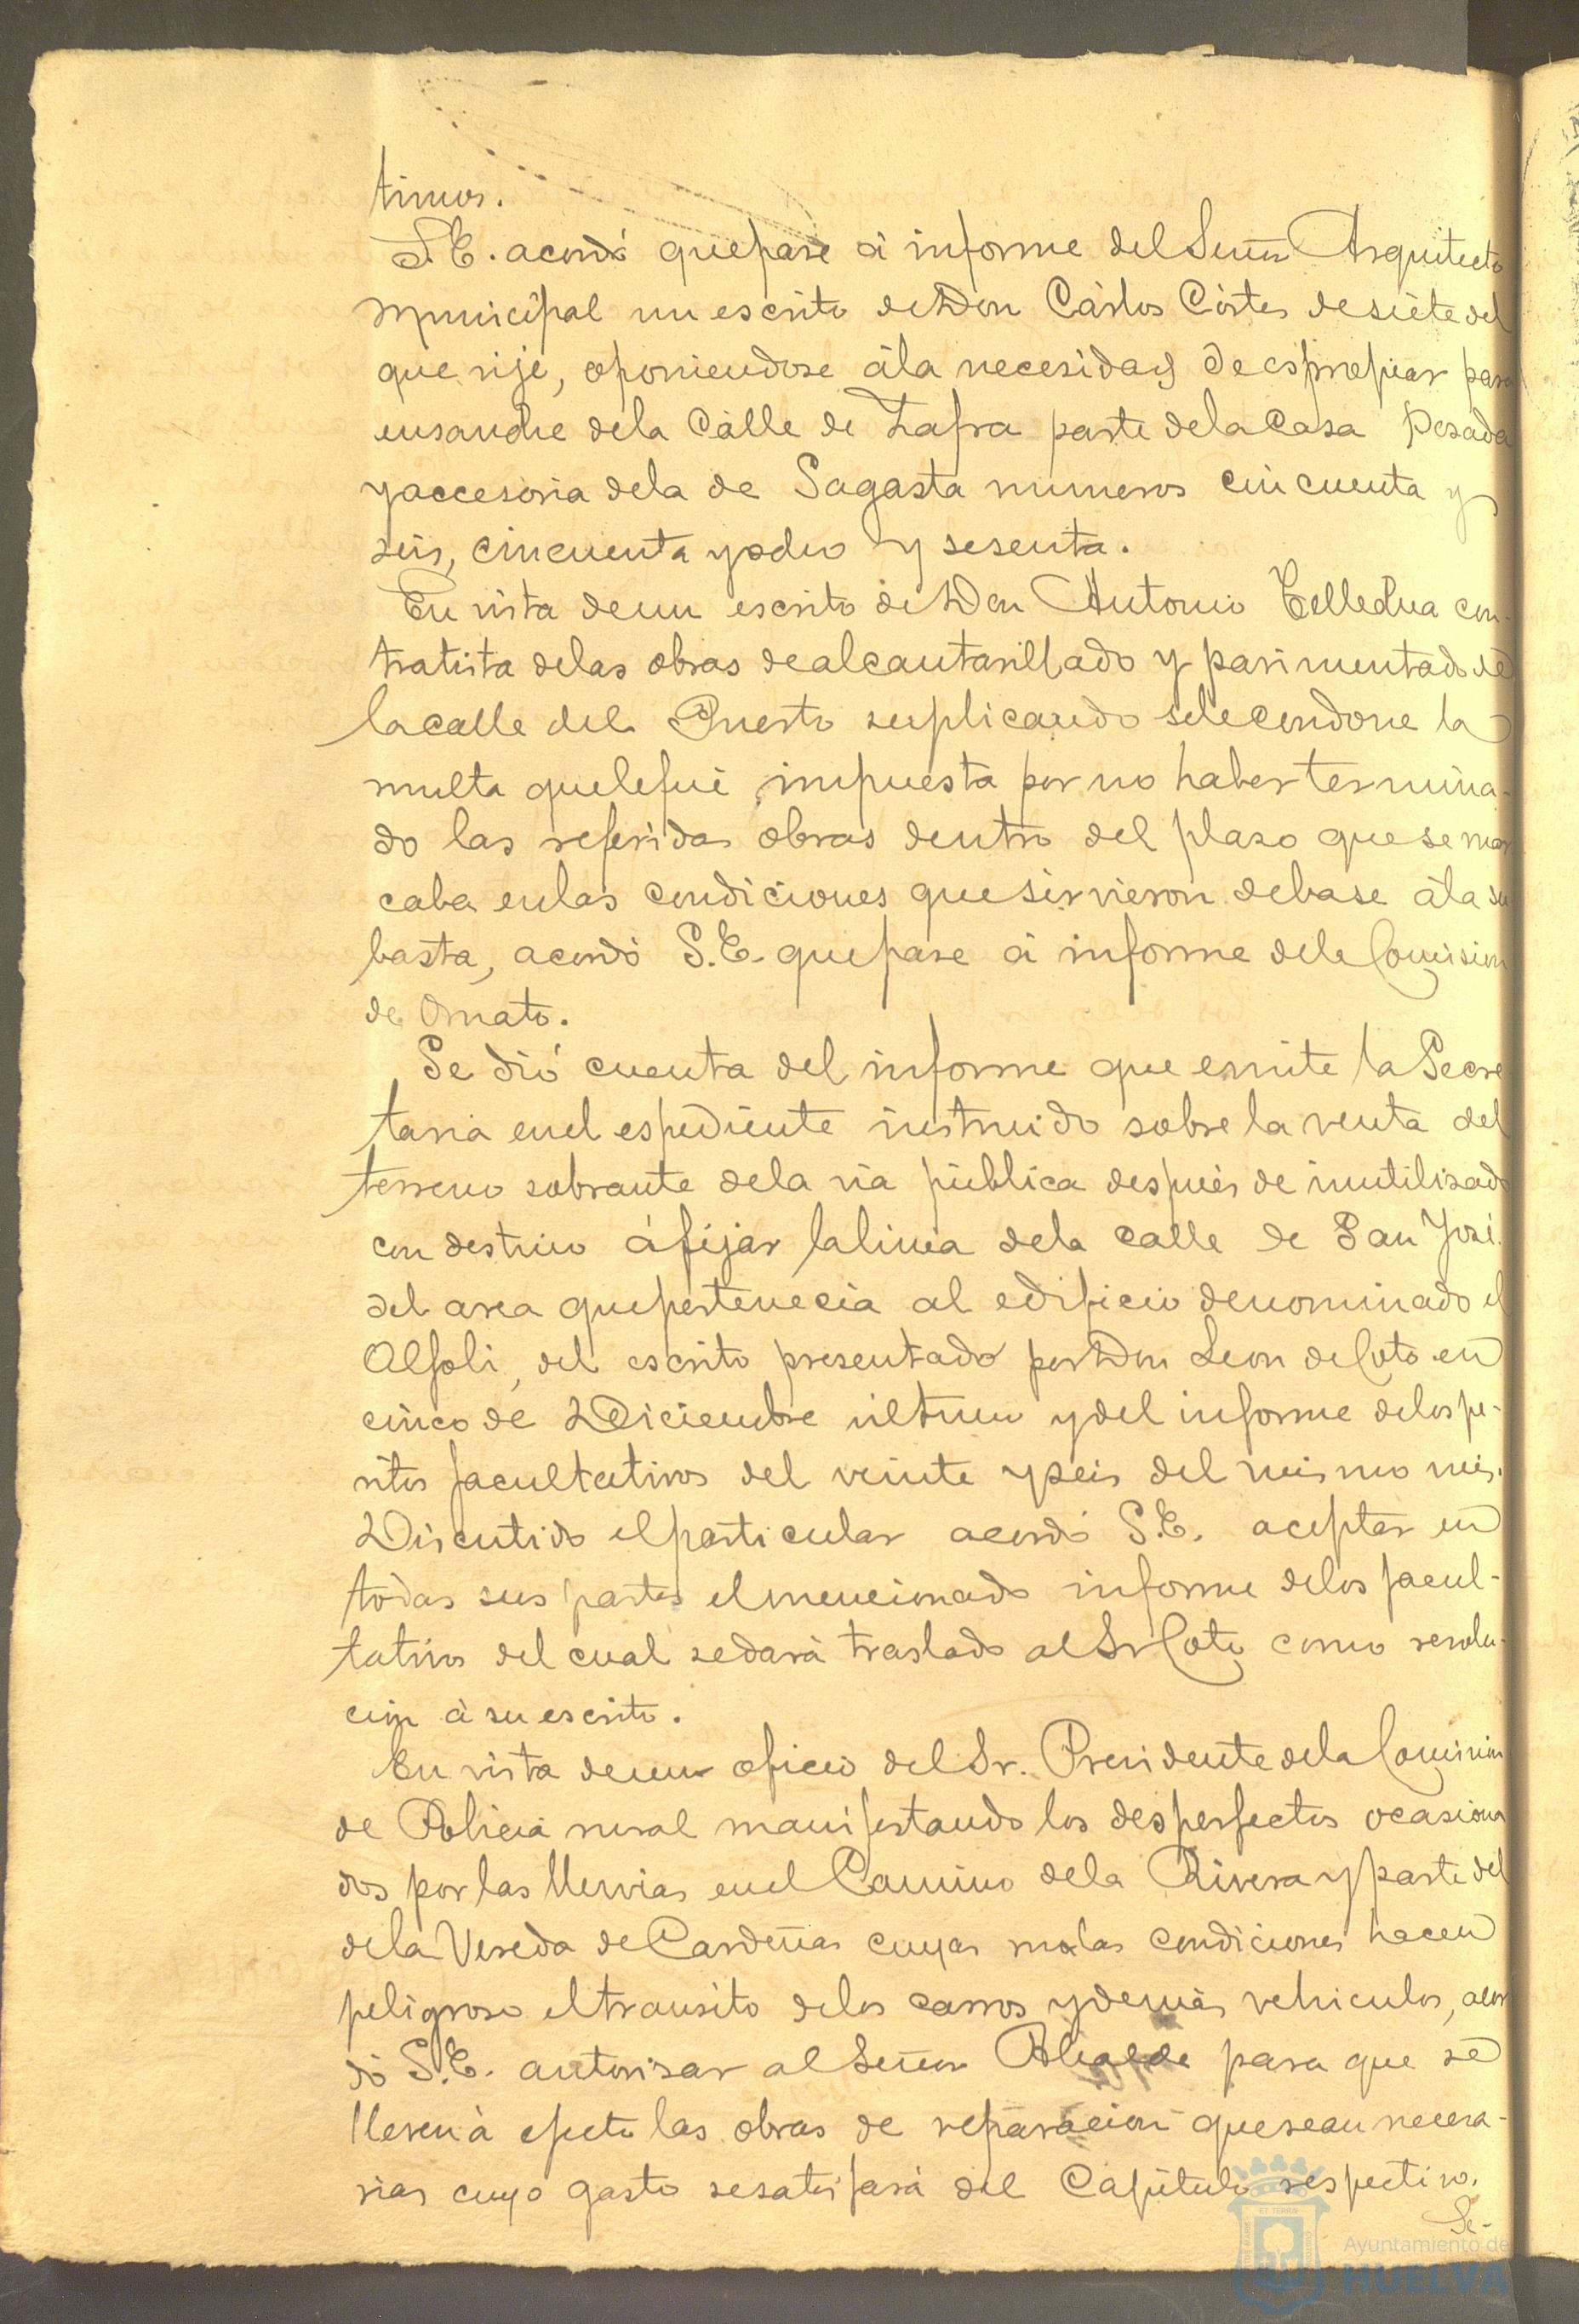 timos.
S.E. acordó que pase á informe del Señor Arquitecto
Municipal un escrito de Don Cárlos Córtes de siete del
que rije, oponiendose á la necesidad de espropiar para
ensanche de la Calle de Zafra parte de la Casa Posada
y accesoria de la de Sagasta numeros cincuenta y
seis, cincuenta y ocho y sesenta.
En vista de un escrito de Don Antonio con-
tratista de las obras de alcantarillado y pavimentado de
la calle del Puerto suplicando se le condone la
multa que le fué impuesta por no haber termina-
do las referidas obras dentro del plazo que se mar
caba en las condiciones que sirvieron de base á la su
basta, acordó S.E. que pase á informe de la Comision
de Ornato.
Se dió cuenta del informe que emite la Secre
taria en el espediente instruido sobre la venta del
terreno sobrante de la via pública después de inutilizado
con destino á fijar la linea de la calle de San José
del area que pertenecia al edificio denominado el
Alfolí, del escrito presentado por Don Leon de Coto en
cinco de Diciembre último y del informe de los pe-
ritos facultativos del veinte y seis del mismo mes.
Discutido el particular acordó S.E. aceptar en
todas sus partes el mencionado informe de los facul-
tativos del cual se dará traslado al Sr Coto como resolu-
cion á su escrito.
En vista de un oficio del Sr. Presidente de la Comision
de Policia rural manifestando los desperfectos ocasiona
dos por las lluvias en el Camino de la Rivera y parte del
de la Vereda de Cardeñas cuyas malas condiciones hacen
peligroso el transito de los carros y demás vehiculos, acor
dó S.E. autorizar al Señor Alcalde para que se
lleven á efecto las obras de reparacion que sean necesa-
rias cuyo gasto se satisfará del Capítulo respectivo.
Se-
Ayuntamiento de
HUELVA